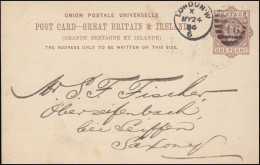 UNION POSTALE UNIVERSELLE
POST CARD—GREAT BRITAIN & IRELAND
(GRANDE BRETAGNE ET IRLANDE)
THE ADDRESS ONLY TO BE WRITTEN ON THIS SIDE
LONDON·W
X
MY 24
86
POSTAGE
46
ONE PENNY
Mr S. F. Fischer,
Oberseifenbach,
bei Seiffen
Saxony